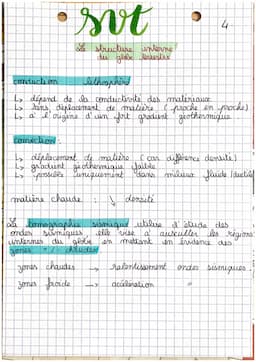 svt
4
La structure interne
du globe terrestre
conduction lithosphère
↳ dépend de la conductivité des matériaux
↳ sans déplacement de matière (proche en proche)
↳ à l'origine d'un fort gradient géothermique
convection :
↳ déplacement de matière (car différence densité)
↳ gradient géothermique faible
↳ possible uniquement dans milieux fluide (ductile)
matière chaude : ↓ densité
La tomographie sismique utilise d'étude des
ondes sismiques, elle vise à ausculter les régions
internes du globe en mettant en évidence des
zones "/ chaudes
zones chaudes → ralentissement ondes sismiques.
zones froide → accélération "